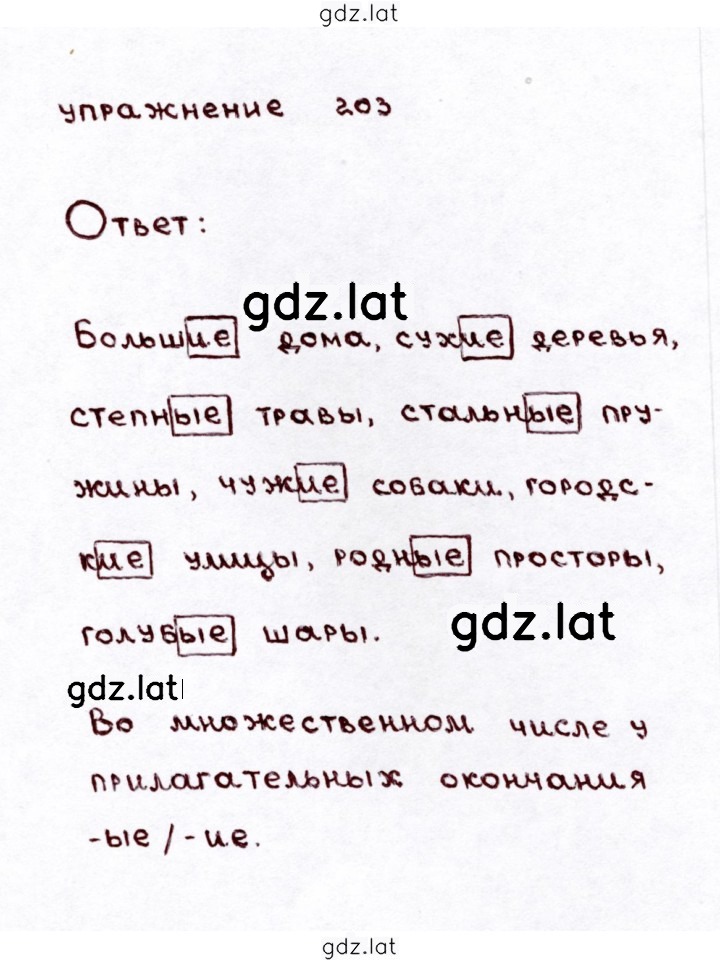 gdz.lat
упражнение 203
Ответ:
gdz.lat
Большие дома, сухие деревья,
степные травы, стальные пру-
жины, чужие собаки, городс-
кие улицы, родные просторы,
голубые шары.
gdz.lat
gdz.lat
Во множественном числе у
прилагательных окончания
-ые/-ие.
gdz.lat